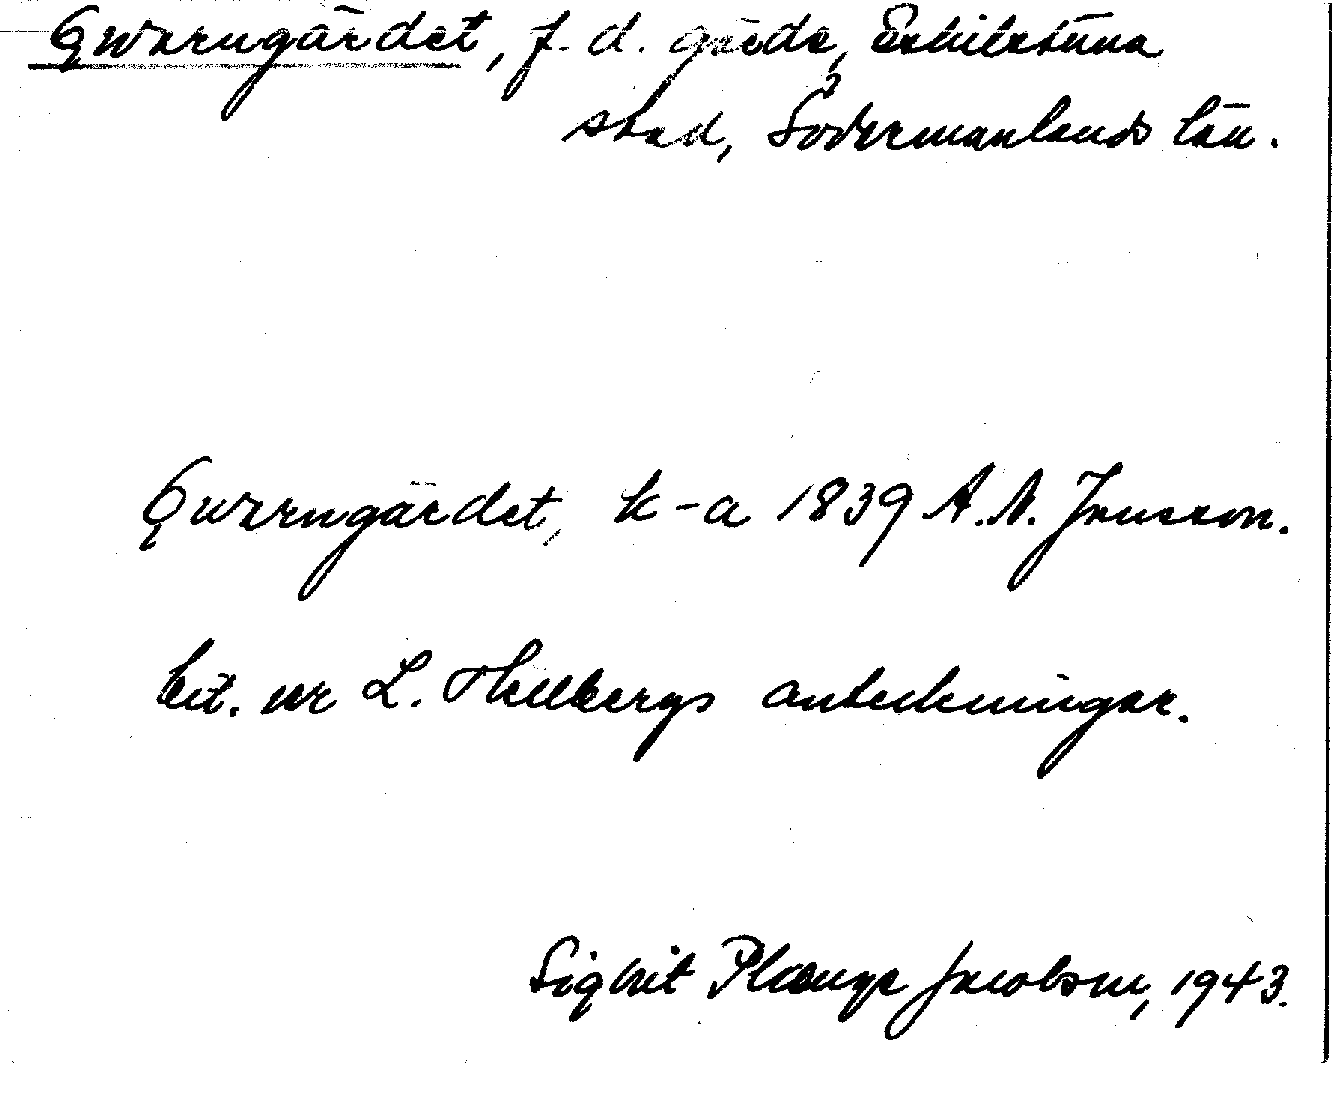 Qwarngärdet, f. d. gärde, Eskilstuna
stad, Södermanlands län.
Qwarngärdet, k-a 1839 A. N. Jansson.
cit. ur L. Hellbergs anteckningar.
Sigbrit Plænge Jacobson, 1943.